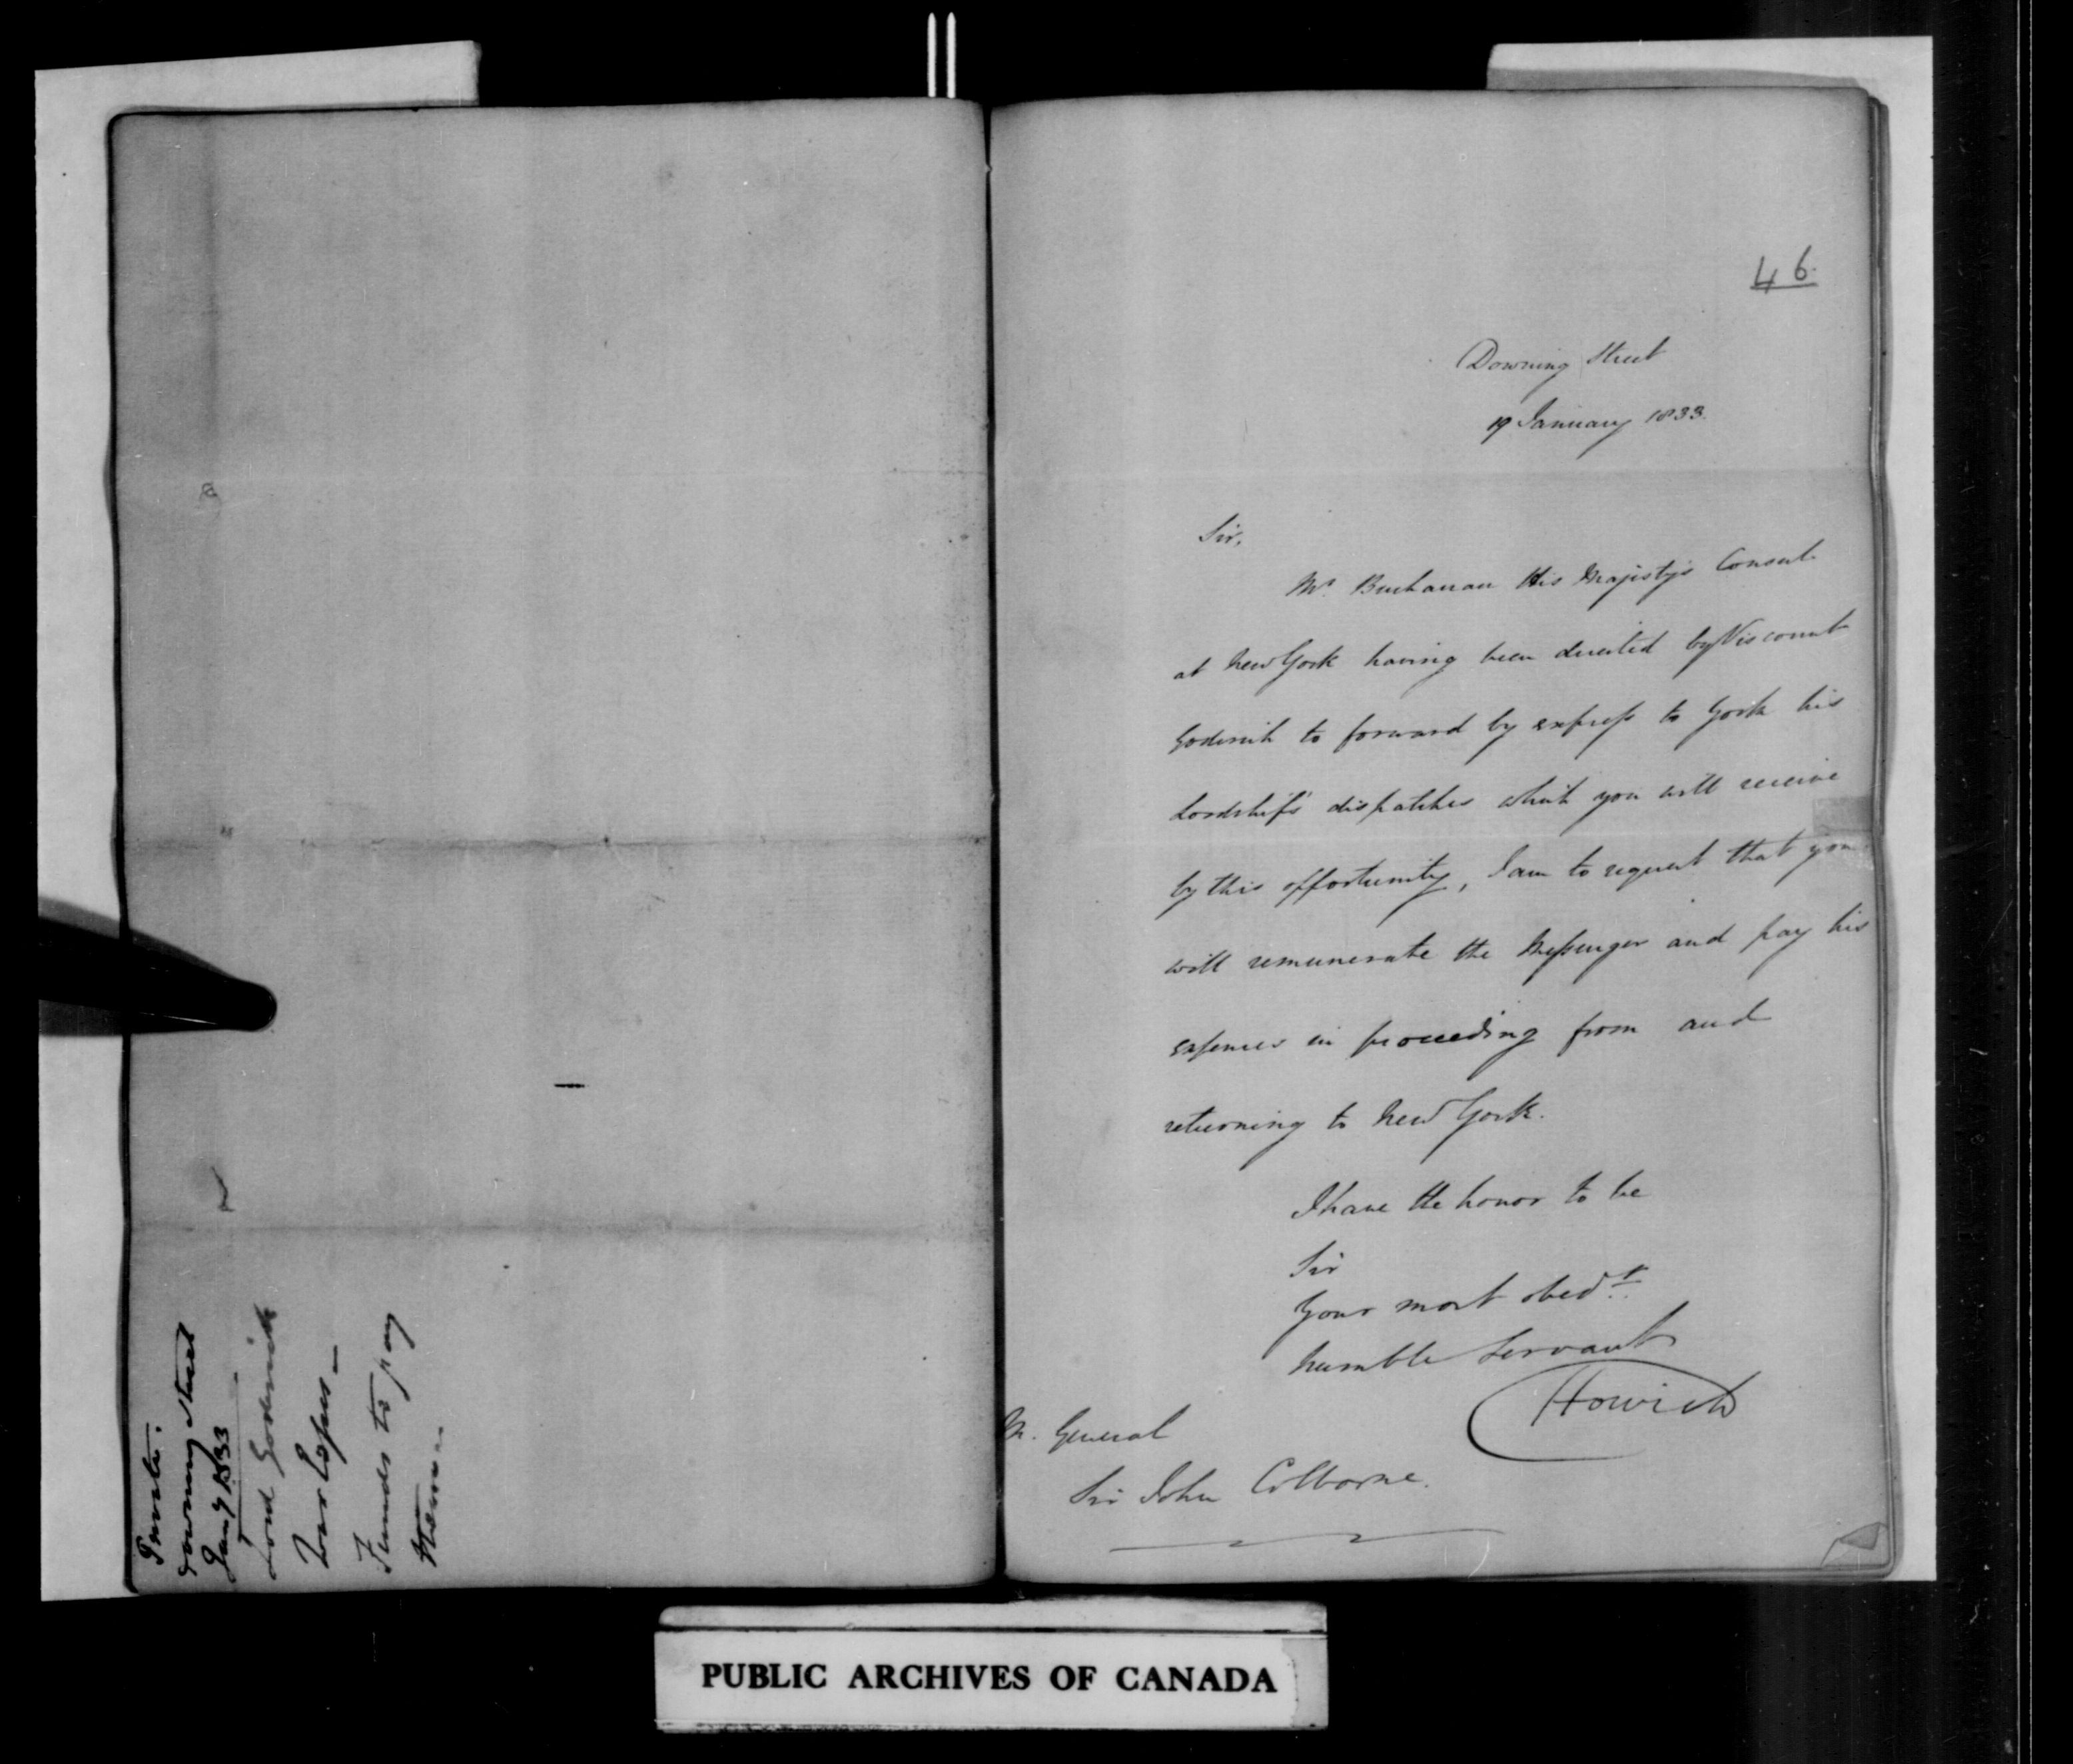 Private.
Downing Street
Jany 1833
Lord Goderich
Funds to pay
46.
Downing Street
19 January 1833.
Sir,
Mr. Buchanan His Majesty's Consul
at New York having been directed by Viscount
Goderich to forward by express to York his
Lordship's dispatches which you will receive
by this opportunity, I am to request that you
will remunerate the Messenger and pay his
expenses in proceeding from and
returning to New York.
I have the honor to be
Sir
Your most obedt.
humble Servant
Howick
M. General
Sir John Colborne.
PUBLIC ARCHIVES OF CANADA